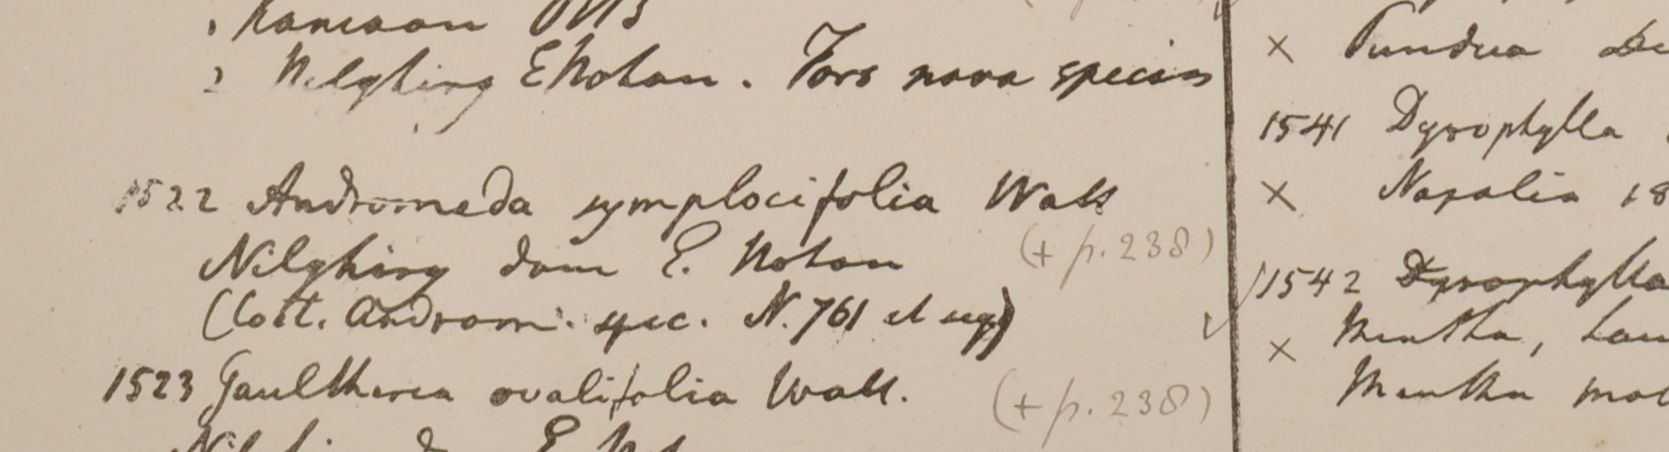 Kamaon
2 Nilghiry E Noton. Fors nova species
1522 Andromeda symplocifolia Wall
Nilghiry dom E. Noton
(+ p. 238)
(Coll. Androm. spec. N. 761 et seq)
1523 Gaultheria ovalifolia Wall.
(+ p. 238)
× Pundua
1541 Dysophylla
× Napalia 18
1542 Dysophylla
× Mentha,
Mentha